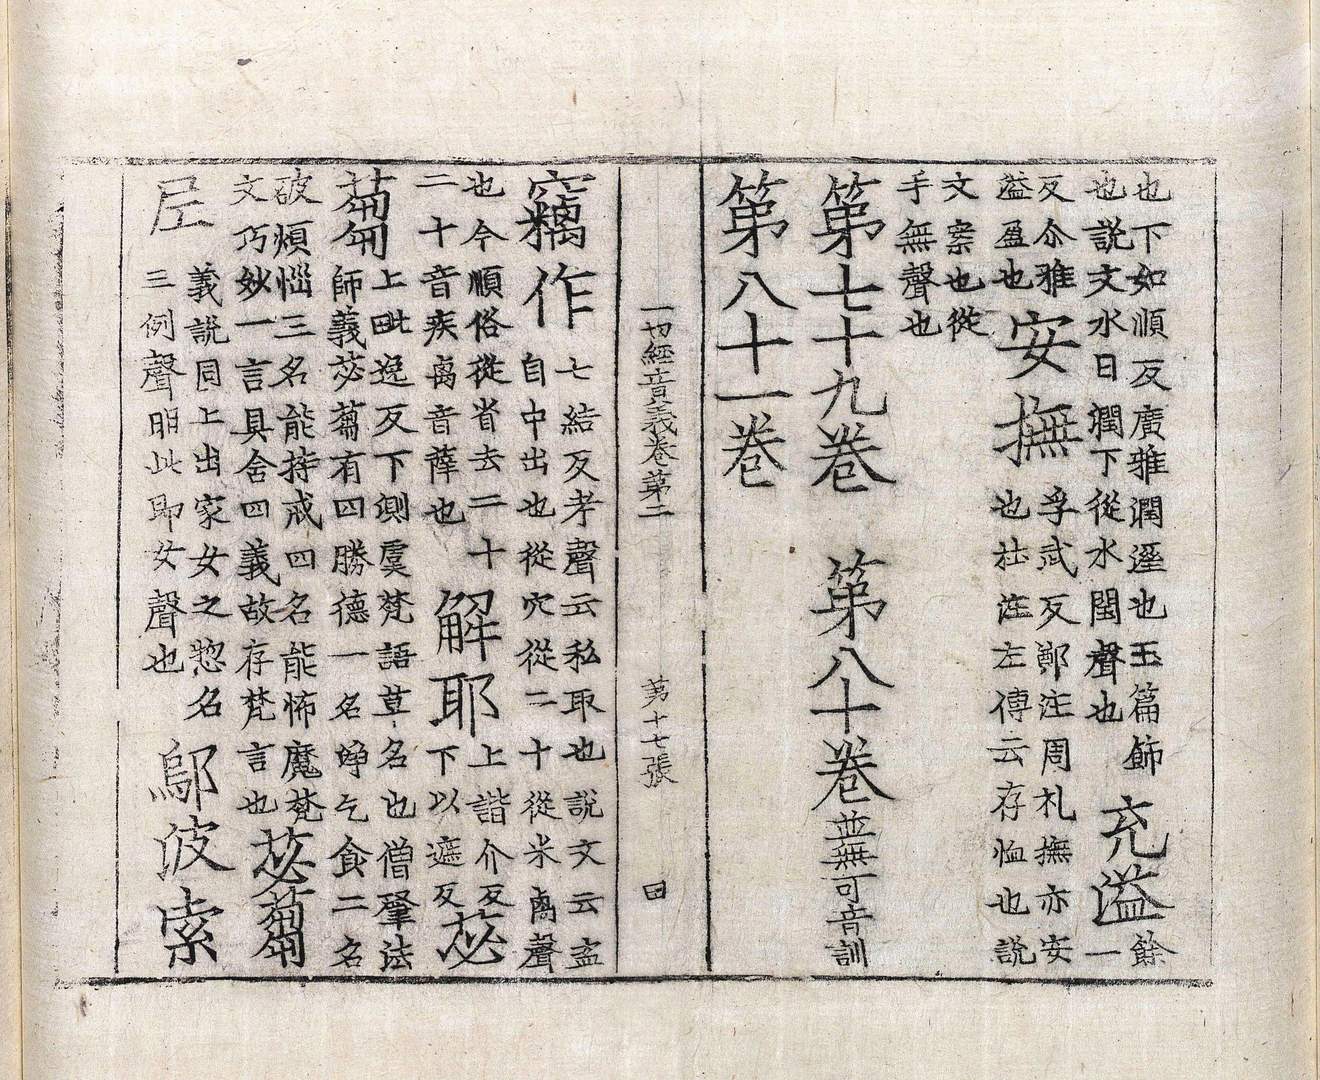 也下如順反廣雅潤溼也玉篇飾
也說文水日潤下從水閏聲也
充溢
餘
一
反尒雅
溢盈也
安撫
孚武反鄭注周札撫亦安
也杜注左傳云存恤也說
文案也從
手無聲也
第七十九卷 第八十卷
並無可音訓
第八十一卷
一切經音義卷第二 第十七張 田
竊作
七結反考聲云私取也說文云盗
自中出也從穴從二十從米禼聲
也今順俗從省去二十
二十音疾禼音薛也
解耶
上諧介反
下以遮反
苾
蒭
上毗逸反下測虞梵語草名也僧肇法
師義苾蒭有四勝德一名淨乞食二名
破煩惱三名能持戒四名能怖魔梵
文巧妙一言具含四義故存梵言也
苾蒭
尼
義說同上出家女之惣名
三例聲明此即女聲也
鄔波索